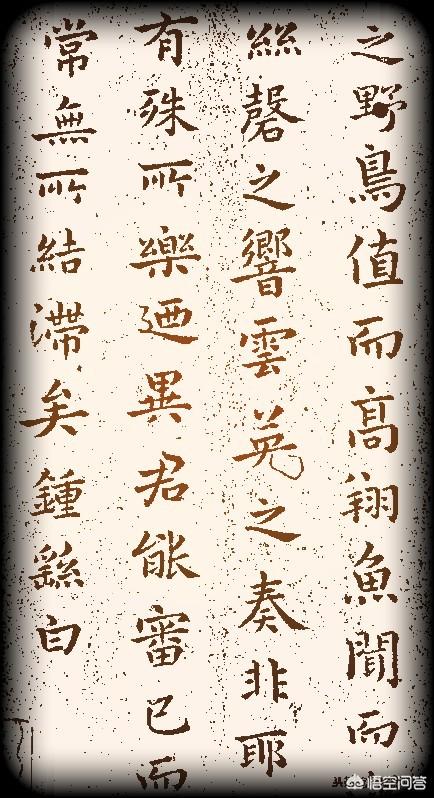 之野鳥值而高翔魚聞而
絲磬之響雲英之奏非耶
有殊所樂迺異君能審已而
常無所結滯矣鍾繇白
悟空问答